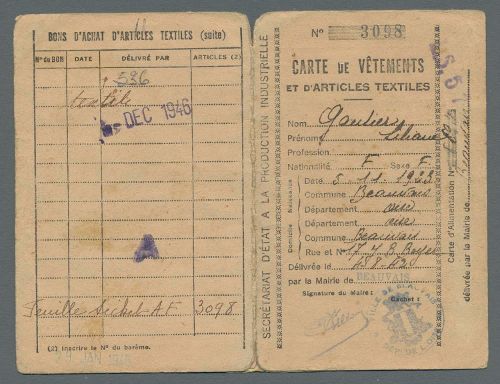 BONS D'ACHAT D'ARTICLES TEXTILES (suite)
N° du BON DATE DÉLIVRÉ PAR ARTICLES (2)
536
textile
DEC 1946
A
3098
(2) Inscrire le N° du barème.
JAN
SECRÉTARIAT D'ÉTAT A LA PRODUCTION INDUSTRIELLE
N° 3098
CARTE DE VÊTEMENTS
ET D'ARTICLES TEXTILES
Nom
Prénom Liliane
Profession
Nationalité F Sexe F
Naissance
Date 5 11 1923
Commune Beauvais
Département Oise
Domicile
Département Oise
Commune Beauvais
Rue et N°
Délivrée le 4 8 42
par la Mairie de BEAUVAIS
Signature du Maire : Cachet :
Carte d'Alimentation N°
délivrée par la Mairie de Beauvais